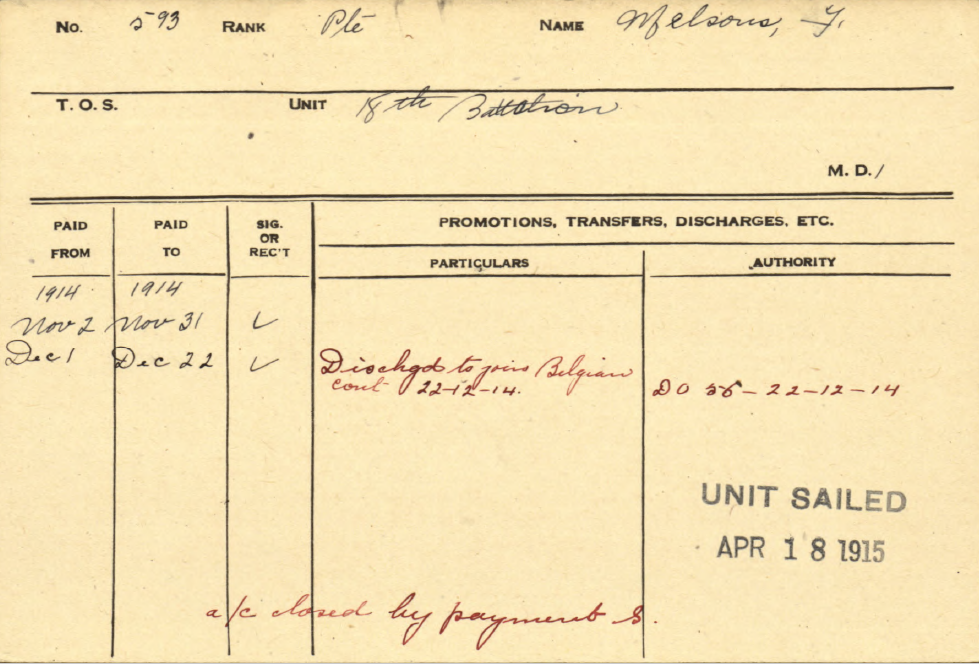 No. 593 RANK Pte NAME Melsons, F.
T. O. S. UNIT 18th Battalion
M. D. 1
PAID FROM PAID TO SIG. OR REC'T PROMOTIONS, TRANSFERS, DISCHARGES, ETC.
PARTICULARS AUTHORITY
1914 1914
Nov 2 Nov 31 ✓
Dec 1 Dec 22 ✓ Dischgd to join Belgian
cont 22-12-14. DO 56 - 22-12-14
UNIT SAILED
APR 18 1915
a/c closed by payment S.